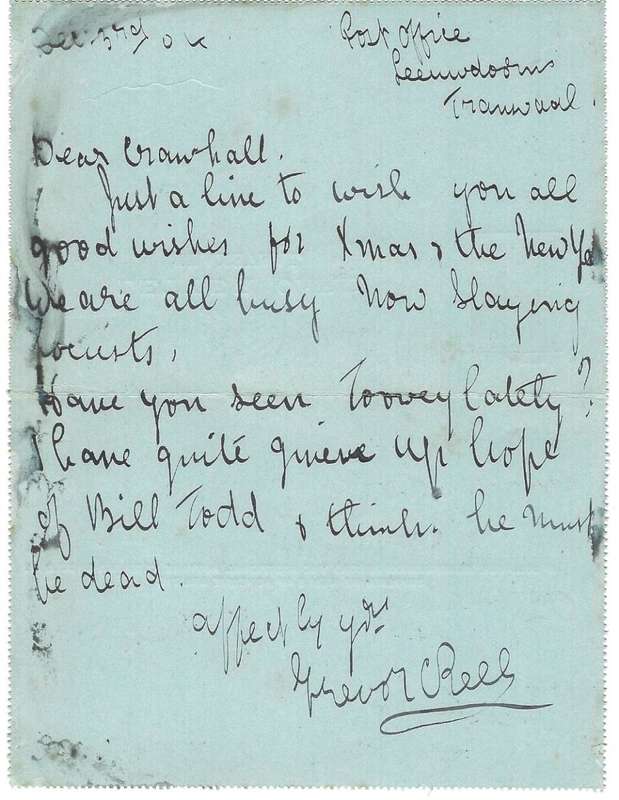 Dec 3rd 04
Post Office
Leeuwdoorns
Transvaal.
Dear Crawhall.
Just a line to wish you all
good wishes for Xmas & the New Ye
We are all busy now slaying
locusts,
Have you seen Toovey lately?
I have quite givene up hope
of Bill Todd & think he must
be dead.
affectly yrs
Trevor C Rees